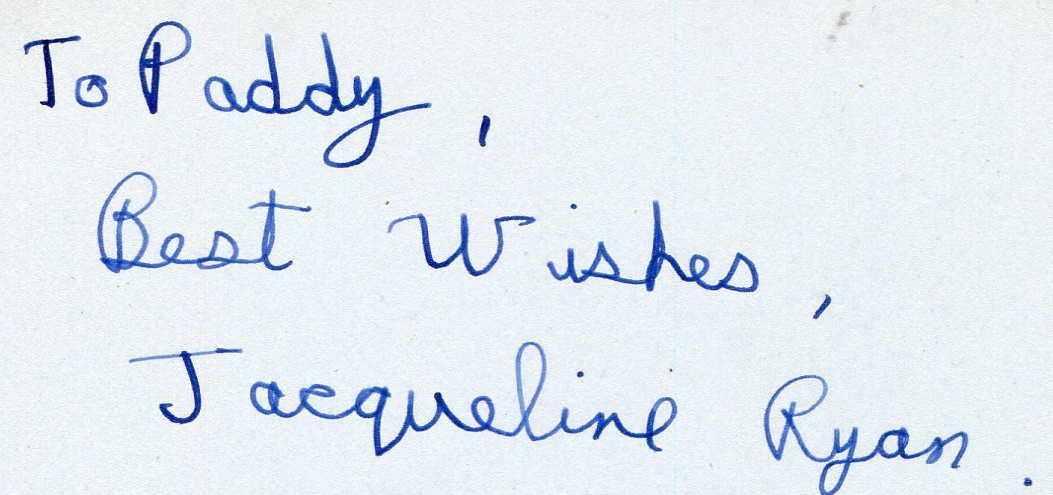 To Paddy,
Best Wishes,
Jacqueline Ryan.